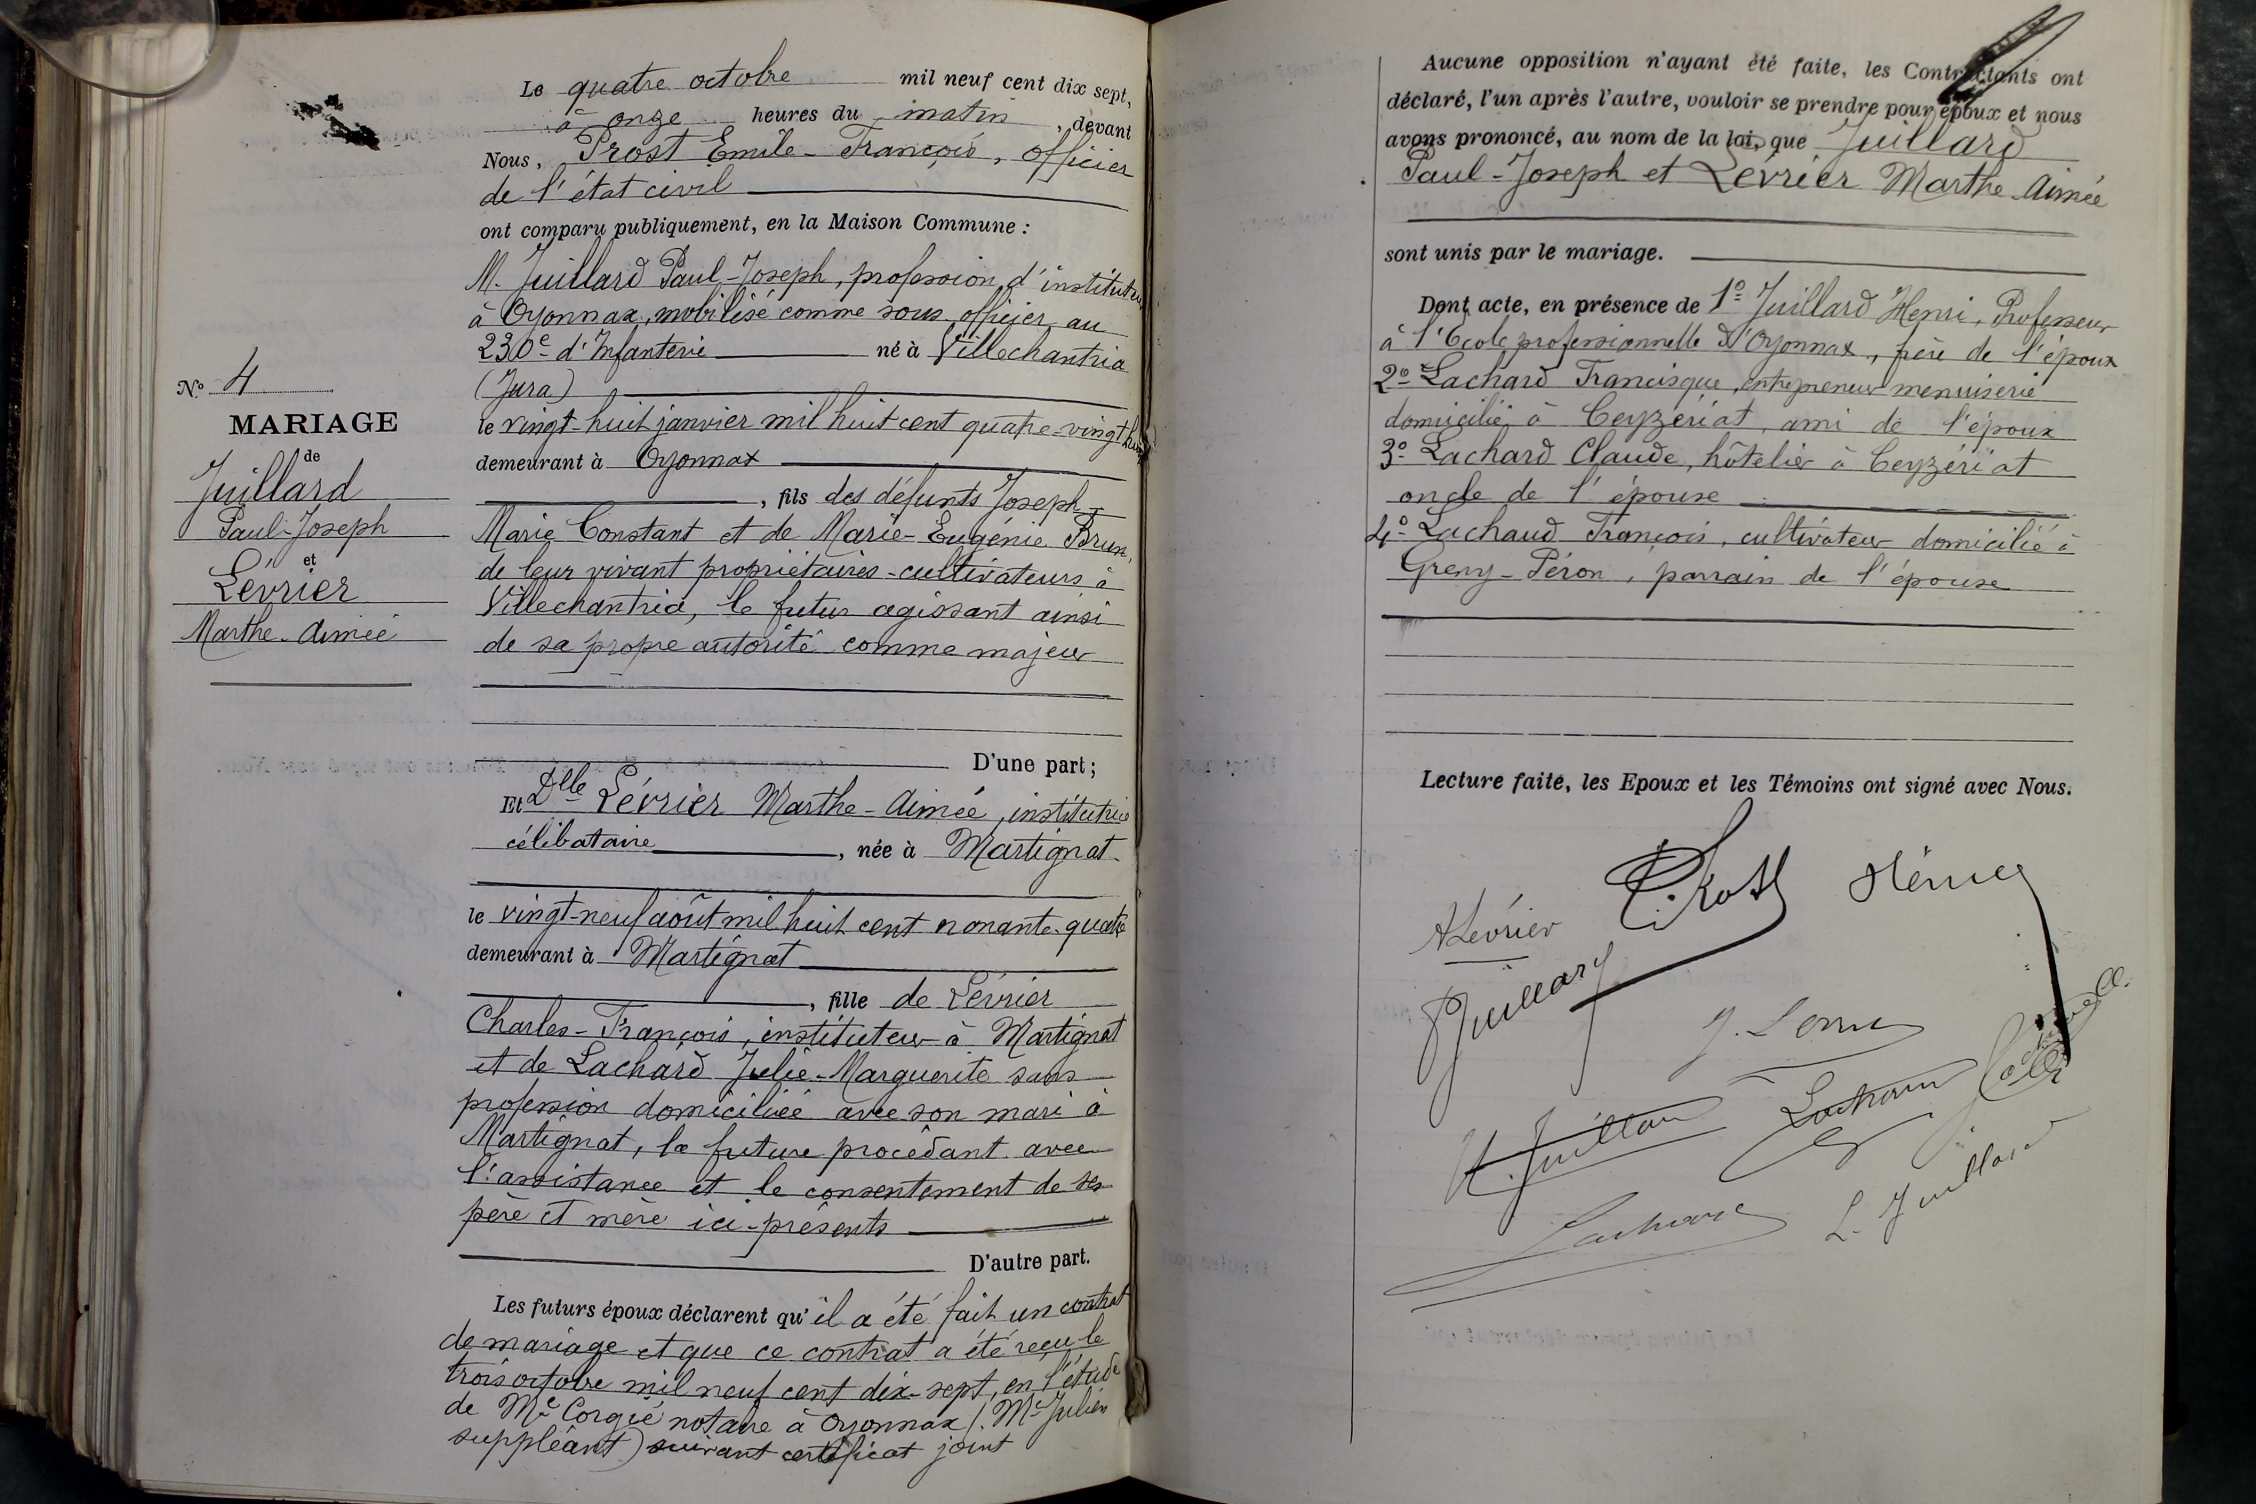 Le quatre octobre mil neuf cent dix sept,
à onze heures du matin, devant
Nous, Prost Emile-François, officier
de l'état civil
ont comparu publiquement, en la Maison Commune :
M. Juillard Paul-Joseph, profession d'instituteur
à Oyonnax, mobilisé comme sous officier au
230e d'Infanterie né à Villechantria
(Jura)
le vingt-huit janvier mil huit cent quatre-vingt huit
demeurant à Oyonnax
, fils des défunts Joseph-
Marie Constant et de Marie-Eugénie Brun,
de leur vivant propriétaires-cultivateurs à
Villechantria, le futur agissant ainsi
de sa propre autorité comme majeur
D'une part ;
Et Dlle Lévrier Marthe-Aimée, institutrice
célibataire, née à Martignat
le vingt-neuf août mil huit cent nonante-quatre
demeurant à Martignat
, fille de Lévrier
Charles-François, instituteur à Martignat
et de Lachard Julie-Marguerite sans
profession domiciliée avec son mari à
Martignat, la future procédant avec
l'assistance et le consentement de ses
père et mère ici-présents
D'autre part.
Les futurs époux déclarent qu'il a été fait un contrat
de mariage et que ce contrat a été reçu le
trois octobre mil neuf cent dix-sept, en l'étude
de Me Corgié notaire à Oyonnax (Me Julien
suppléant) suivant certificat joint
No 4
MARIAGE
de
Juillard
Paul-Joseph
et
Lévrier
Marthe-Aimée
Aucune opposition n'ayant été faite, les Contractants ont
déclaré, l'un après l'autre, vouloir se prendre pour époux et nous
avons prononcé, au nom de la loi, que Juillard
Paul-Joseph et Lévrier Marthe Aimée
sont unis par le mariage.
Dont acte, en présence de 1o Juillard Henri, Professeur
à l'Ecole professionnelle d'Oyonnax, frère de l'époux
2o Lachard Francisque, entrepreneur menuiserie
domicilié à Ceyzériat, ami de l'époux
3o Lachard Claude, hôtelier à Ceyzériat
oncle de l'épouse
4o Lachaud François, cultivateur domicilié à
Greny-Péron, parrain de l'épouse
Lecture faite, les Epoux et les Témoins ont signé avec Nous.
Prost
Lévrier
PJuillard
H. Juillard
Lachard
L. Juillard